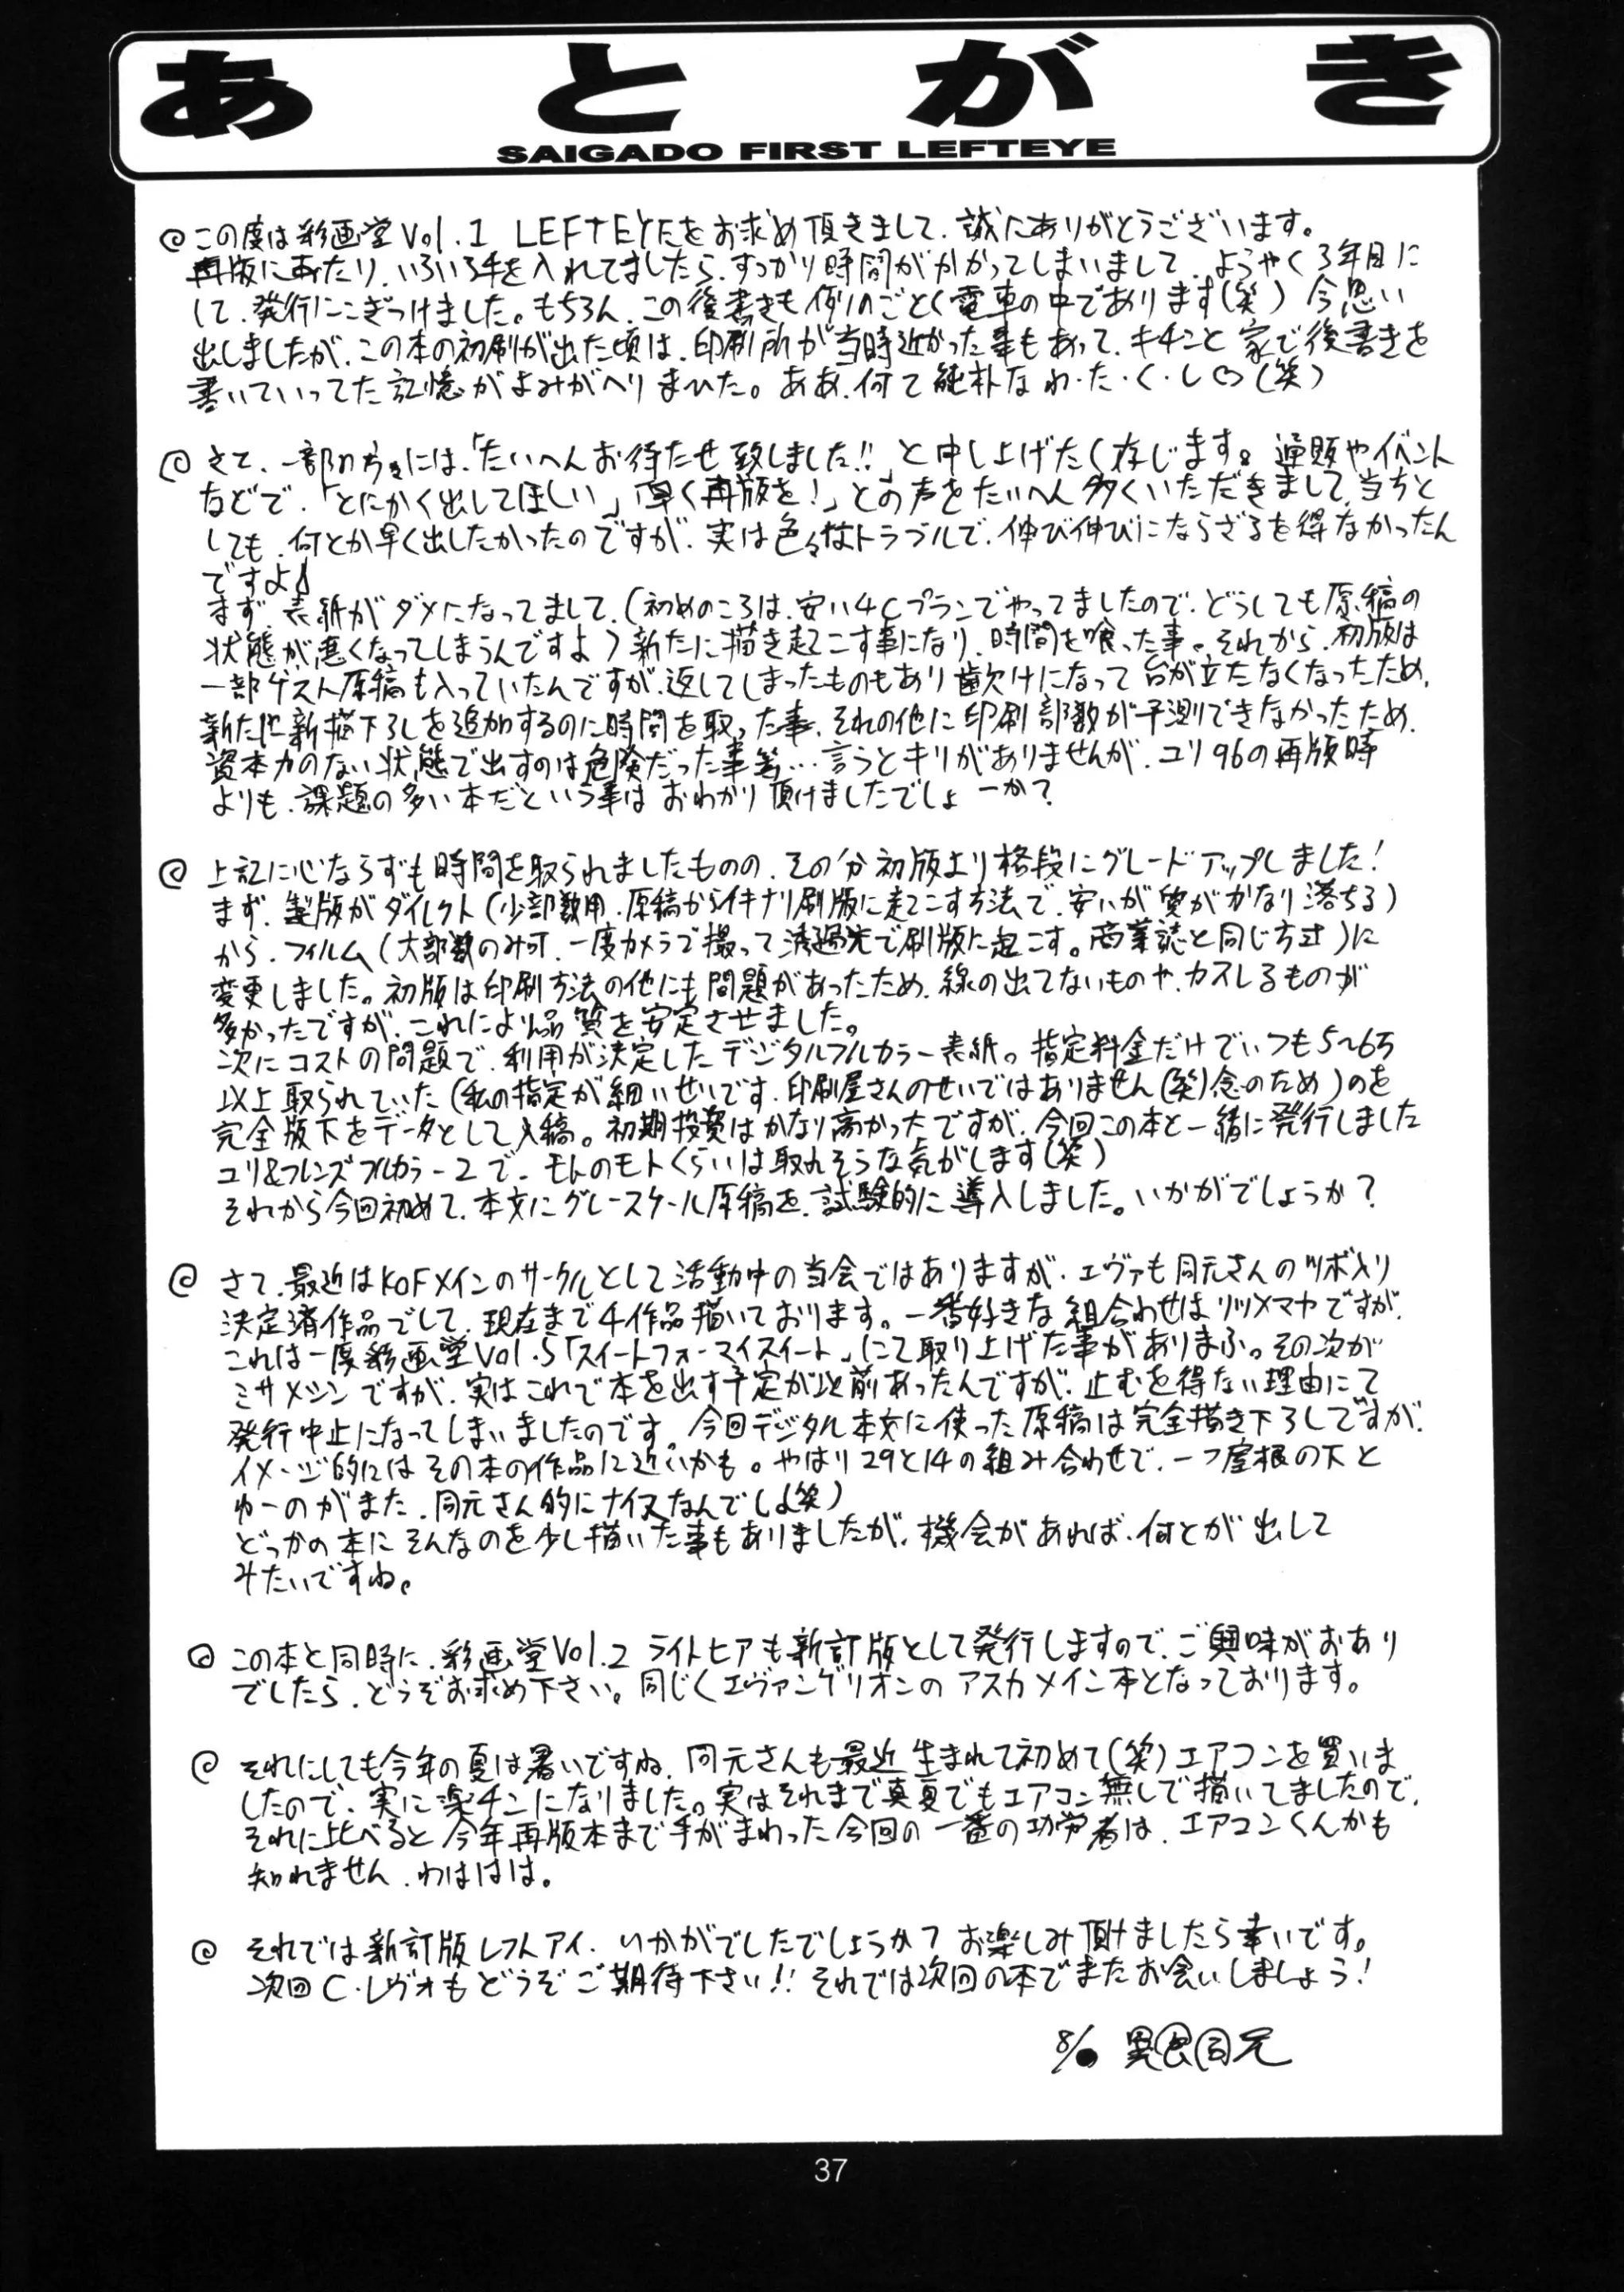 あとがき
SAIGADO FIRST LEFTEYE
◎この度は彩画堂Vol.1 LEFTEYEをお求め頂きまして、誠にありがとうございます。
再版にあたり、いろいろ手を入れてましたら、すっかり時間がかかってしまいまして、ようやく3年目に
して、発行にこぎつけました。もちろん、この後書きも例のごとく電車の中であります(笑) 今思い
出しましたが、この本の初刷が出た頃は、印刷所が当時近かった事もあって、キチンと家で後書きを
書いていってた記憶がよみがへりまひた。ああ、何て純朴なわ・た・く・し♡(笑)
◎さて、一部の方々には、「たいへんお待たせ致しました!!」と申し上げたく存じます。通販やイベント
などで、「とにかく出してほしい」「早く再版を!」との声をたいへん多くいただきまして、当方と
しても、何とか早く出したかったのですが、実は色々なトラブルで、伸び伸びにならざるを得なかったん
ですよ♪
まず、表紙がダメになってまして、(初めのころは、安い4Cプランでやってましたので、どうしても原稿の
状態が悪くなってしまうんですよ)新たに描き起こす事になり、時間を喰った事。それから、初版は
一部ゲスト原稿も入っていたんですが、返してしまったものもあり歯欠けになって台が立たなくなったため、
新たに新描下ろしを追加するのに時間を取った事、それの他に印刷部数が予測できなかったため、
資本力のない状態で出すのは危険だった事等…言うとキリがありませんが、ユリ96の再版時
よりも、課題の多い本だという事はおわかり頂けましたでしょーか?
◎上記に心ならずも時間を取られましたものの、その分初版より格段にグレードアップしました!
まず、製版がダイレクト(少部数用、原稿からイキナリ刷版に起こす方法で、安いが質がかなり落ちる)
から、フィルム(大部数のみ可、一度カメラで撮って透過光で刷版に起こす。商業誌と同じ方式)に
変更しました。初版は印刷方法の他にも問題があったため、線の出てないものや、カスレるものが
多かったですが、これにより品質を安定させました。
次にコストの問題で、利用が決定したデジタルフルカラー表紙。指定料金だけでいつも5〜6万
以上取られていた(私の指定が細いせいです、印刷屋さんのせいではありません(笑)念のため)のを
完全版下をデータとして入稿。初期投資はかなり高かったですが、今回この本と一緒に発行しました
ユリ&フレンズフルカラー2で、モトのモトくらいは取れそうな気がします(笑)
それから今回初めて、本文にグレースケール原稿を、試験的に導入しました。いかがでしょうか?
◎さて、最近はKOFメインのサークルとして活動中の当会ではありますが、エヴァも同元さんのツボ入り
決定済作品でして、現在まで4作品描いております。一番好きな組合わせはリツ×マヤですが、
これは一度彩画堂Vol.5「スイートフォーマイスイート」にて取り上げた事がありまふ。その次が
ミサ×シンですが、実はこれで本を出す予定が以前あったんですが、止むを得ない理由にて
発行中止になってしまいましたのです。今回デジタル本文に使った原稿は完全描き下ろしですが、
イメージ的にはその本の作品に近いかも。やはり29と14の組み合わせで、一つ屋根の下と
ゆーのがまた、同元さん的にナイスなんでしょ(笑)
どっかの本にそんなのを少し描いた事もありましたが、機会があれば、何とか出して
みたいですね。
◎この本と同時に、彩画堂Vol.2 ライトヒアも新訂版として発行しますので、ご興味がおあり
でしたら、どうぞお求め下さい。同じくエヴァンゲリオンのアスカメイン本となっております。
◎それにしても今年の夏は暑いですね、同元さんも最近生まれて初めて(笑)エアコンを買いま
したので、実に楽チンになりました。実はそれまで真夏でもエアコン無しで描いてましたので、
それに比べると今年再版本まで手がまわった今回の一番の功労者は、エアコンくんかも
知れません、わははは。
◎それでは新訂版レフトアイ、いかがでしたでしょうか? お楽しみ頂けましたら幸いです。
次回C・レヴォもどうぞご期待下さい!! それでは次回の本でまたお会いしましょう!
同元
37